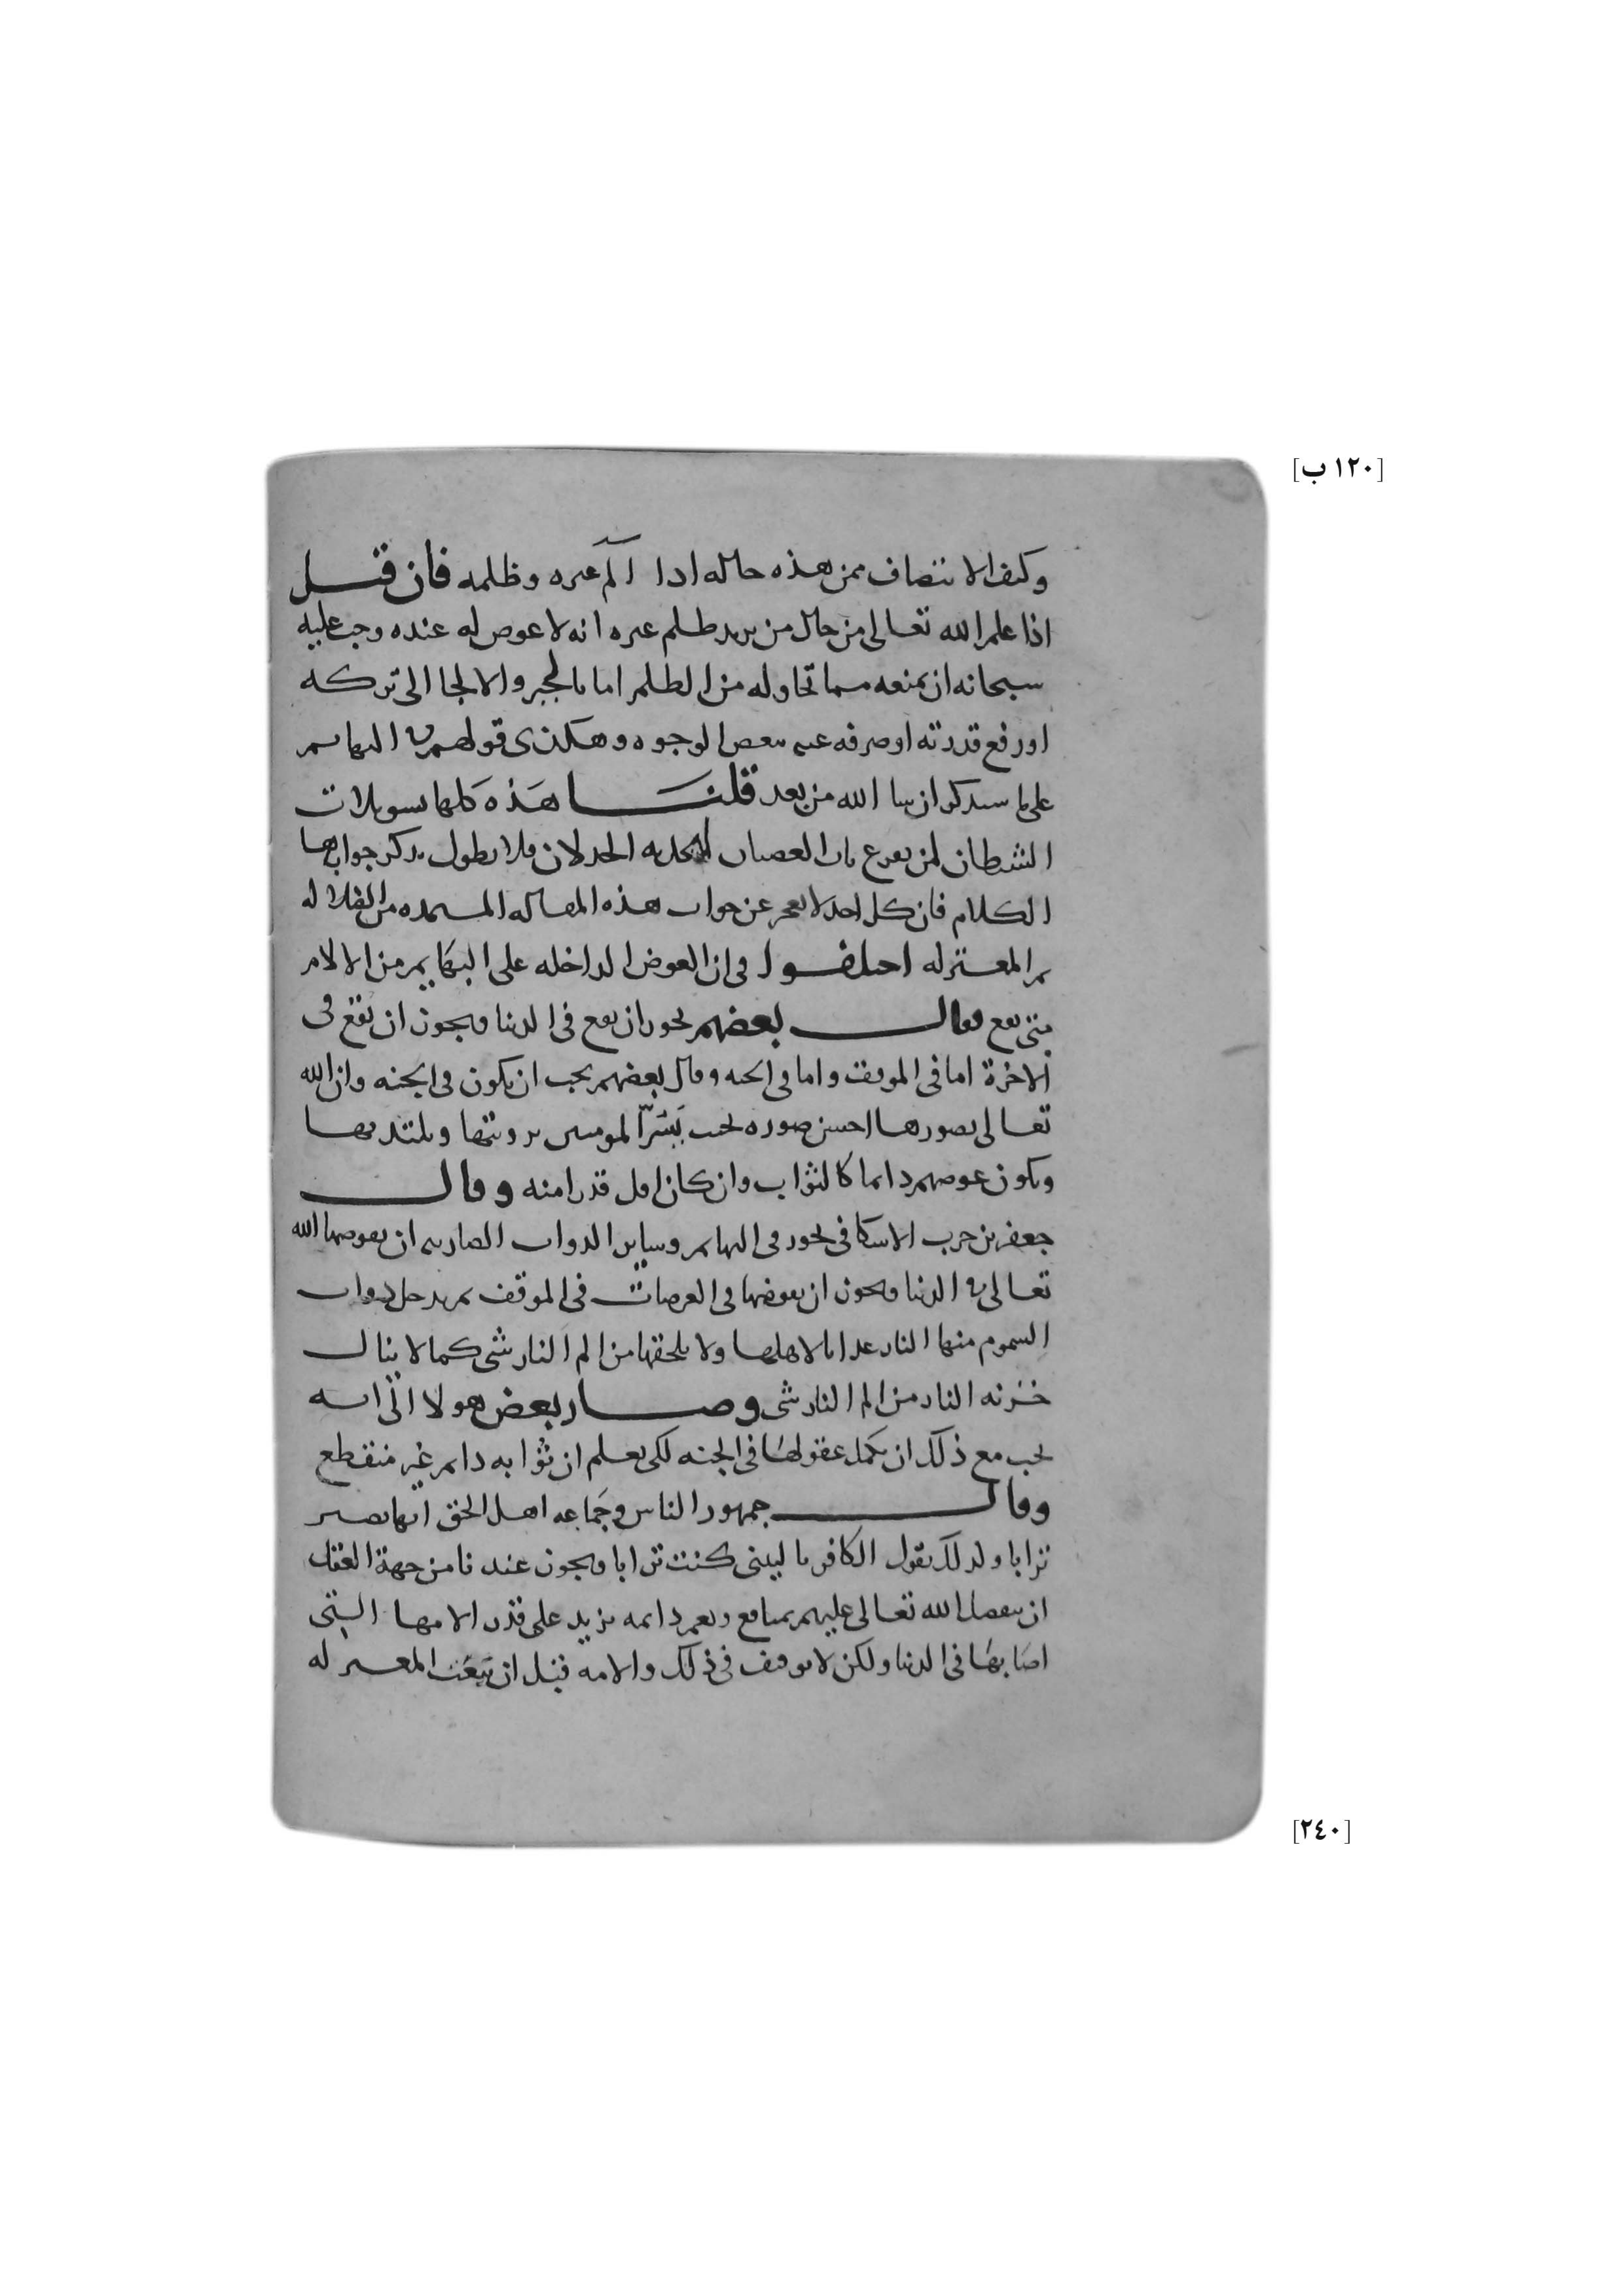 [١٢٠ ب]
وكيف الانتصاف ممن هذه حاله اذا آلم غيره وظلمه فان قيل
اذا علم الله تعالى من حال من يريد ظلم غيره انه لا عوض له عنده وجب عليه
سبحانه ان يمنعه مما تحاوله من الظلم اما بالجبر والالجا الى تركه
او رفع قدرته او صرفه عنه ببعض الوجوه وهكذى قولهم في البهايم
على ما سنذكر ان شا الله من بعد قلنا هذه كلها تسويلات
الشيطان لمن يقرع باب العصيان الخذلان فلا يطول بذكر جوابها
الكلام فان كل احد لا يعجز عن جواب هذه المقاله المستمده من الضلاله
ثم المعتزله اختلفوا في ان العوض الداخله على البهايم من الالام
متى يقع فقال بعضهم يجوز ان يقع في الدنيا ويجوز ان يقع في
الاخرة اما في الموقف واما في الجنه وقال بعضهم يجب ان يكون في الجنه وان الله
تعالى يصورها احسن صوره يجب تبشر المومنين برويتها ويلتذ بها
ويكون عوضهم دايما كالثواب وان كان اقل قدرا منه وقال
جعفر بن حرب الاسكافي يجوز في البهايم وساير الدواب الضاريه ان يعوضها الله
تعالى في الدنيا ويجوز ان يعوضها في العرصات في الموقف ثم يدخل دواب
السموم منها النار عذابا لاهلها ولا يلحقها من الم النار شى كما لا ينال
خزنه النار من الم النار شى وصار بعض هولا الى انه
يجب مع ذلك ان يكمل عقولها في الجنه لكى يعلم ان ثوابه دايم غير منقطع
وقال جمهور الناس وجماعه اهل الحق انها تصير
ترابا ولذلك يقول الكافر يا ليتنى كنت ترابا ويجوز عندنا من جهة العقل
ان يتفضل الله تعالى عليهم بمنافع ونعم دايمه يزيد على قدر الامها التى
اصابها في الدنيا ولكن لا توقيف في ذلك والامه قبل ان تبعت المعتزله
[٢٤٠]